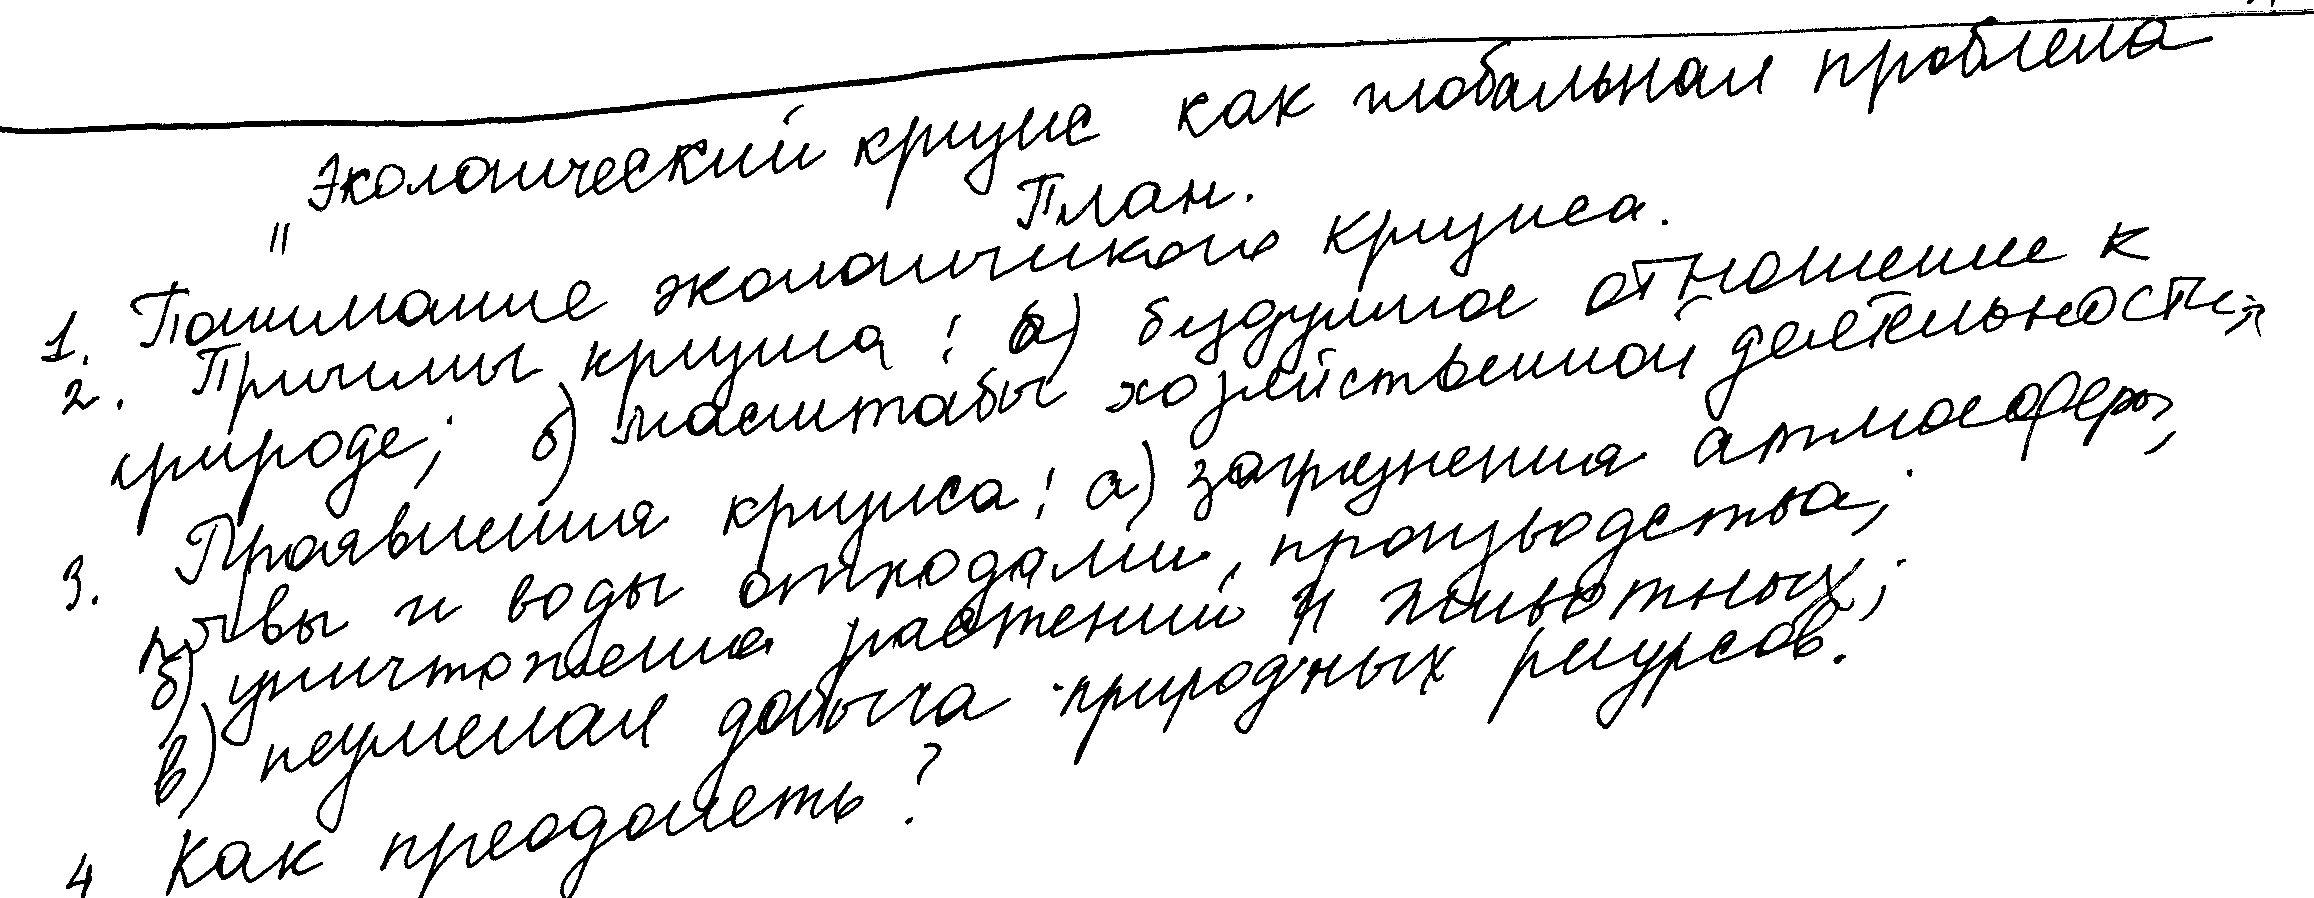 "Экологический кризис как глобальная проблема
План.
1. Понимание экологического кризиса.
2. Причины кризиса: а) бездумное отношение к
природе; б) масштабы хозяйственной деятельности
3. Проявления кризиса: а) загрязнения атмосферы,
почвы и воды отходами производства;
б) уничтожение растений и животных;
в) неумелая добыча природных ресурсов.
4 Как преодолеть?